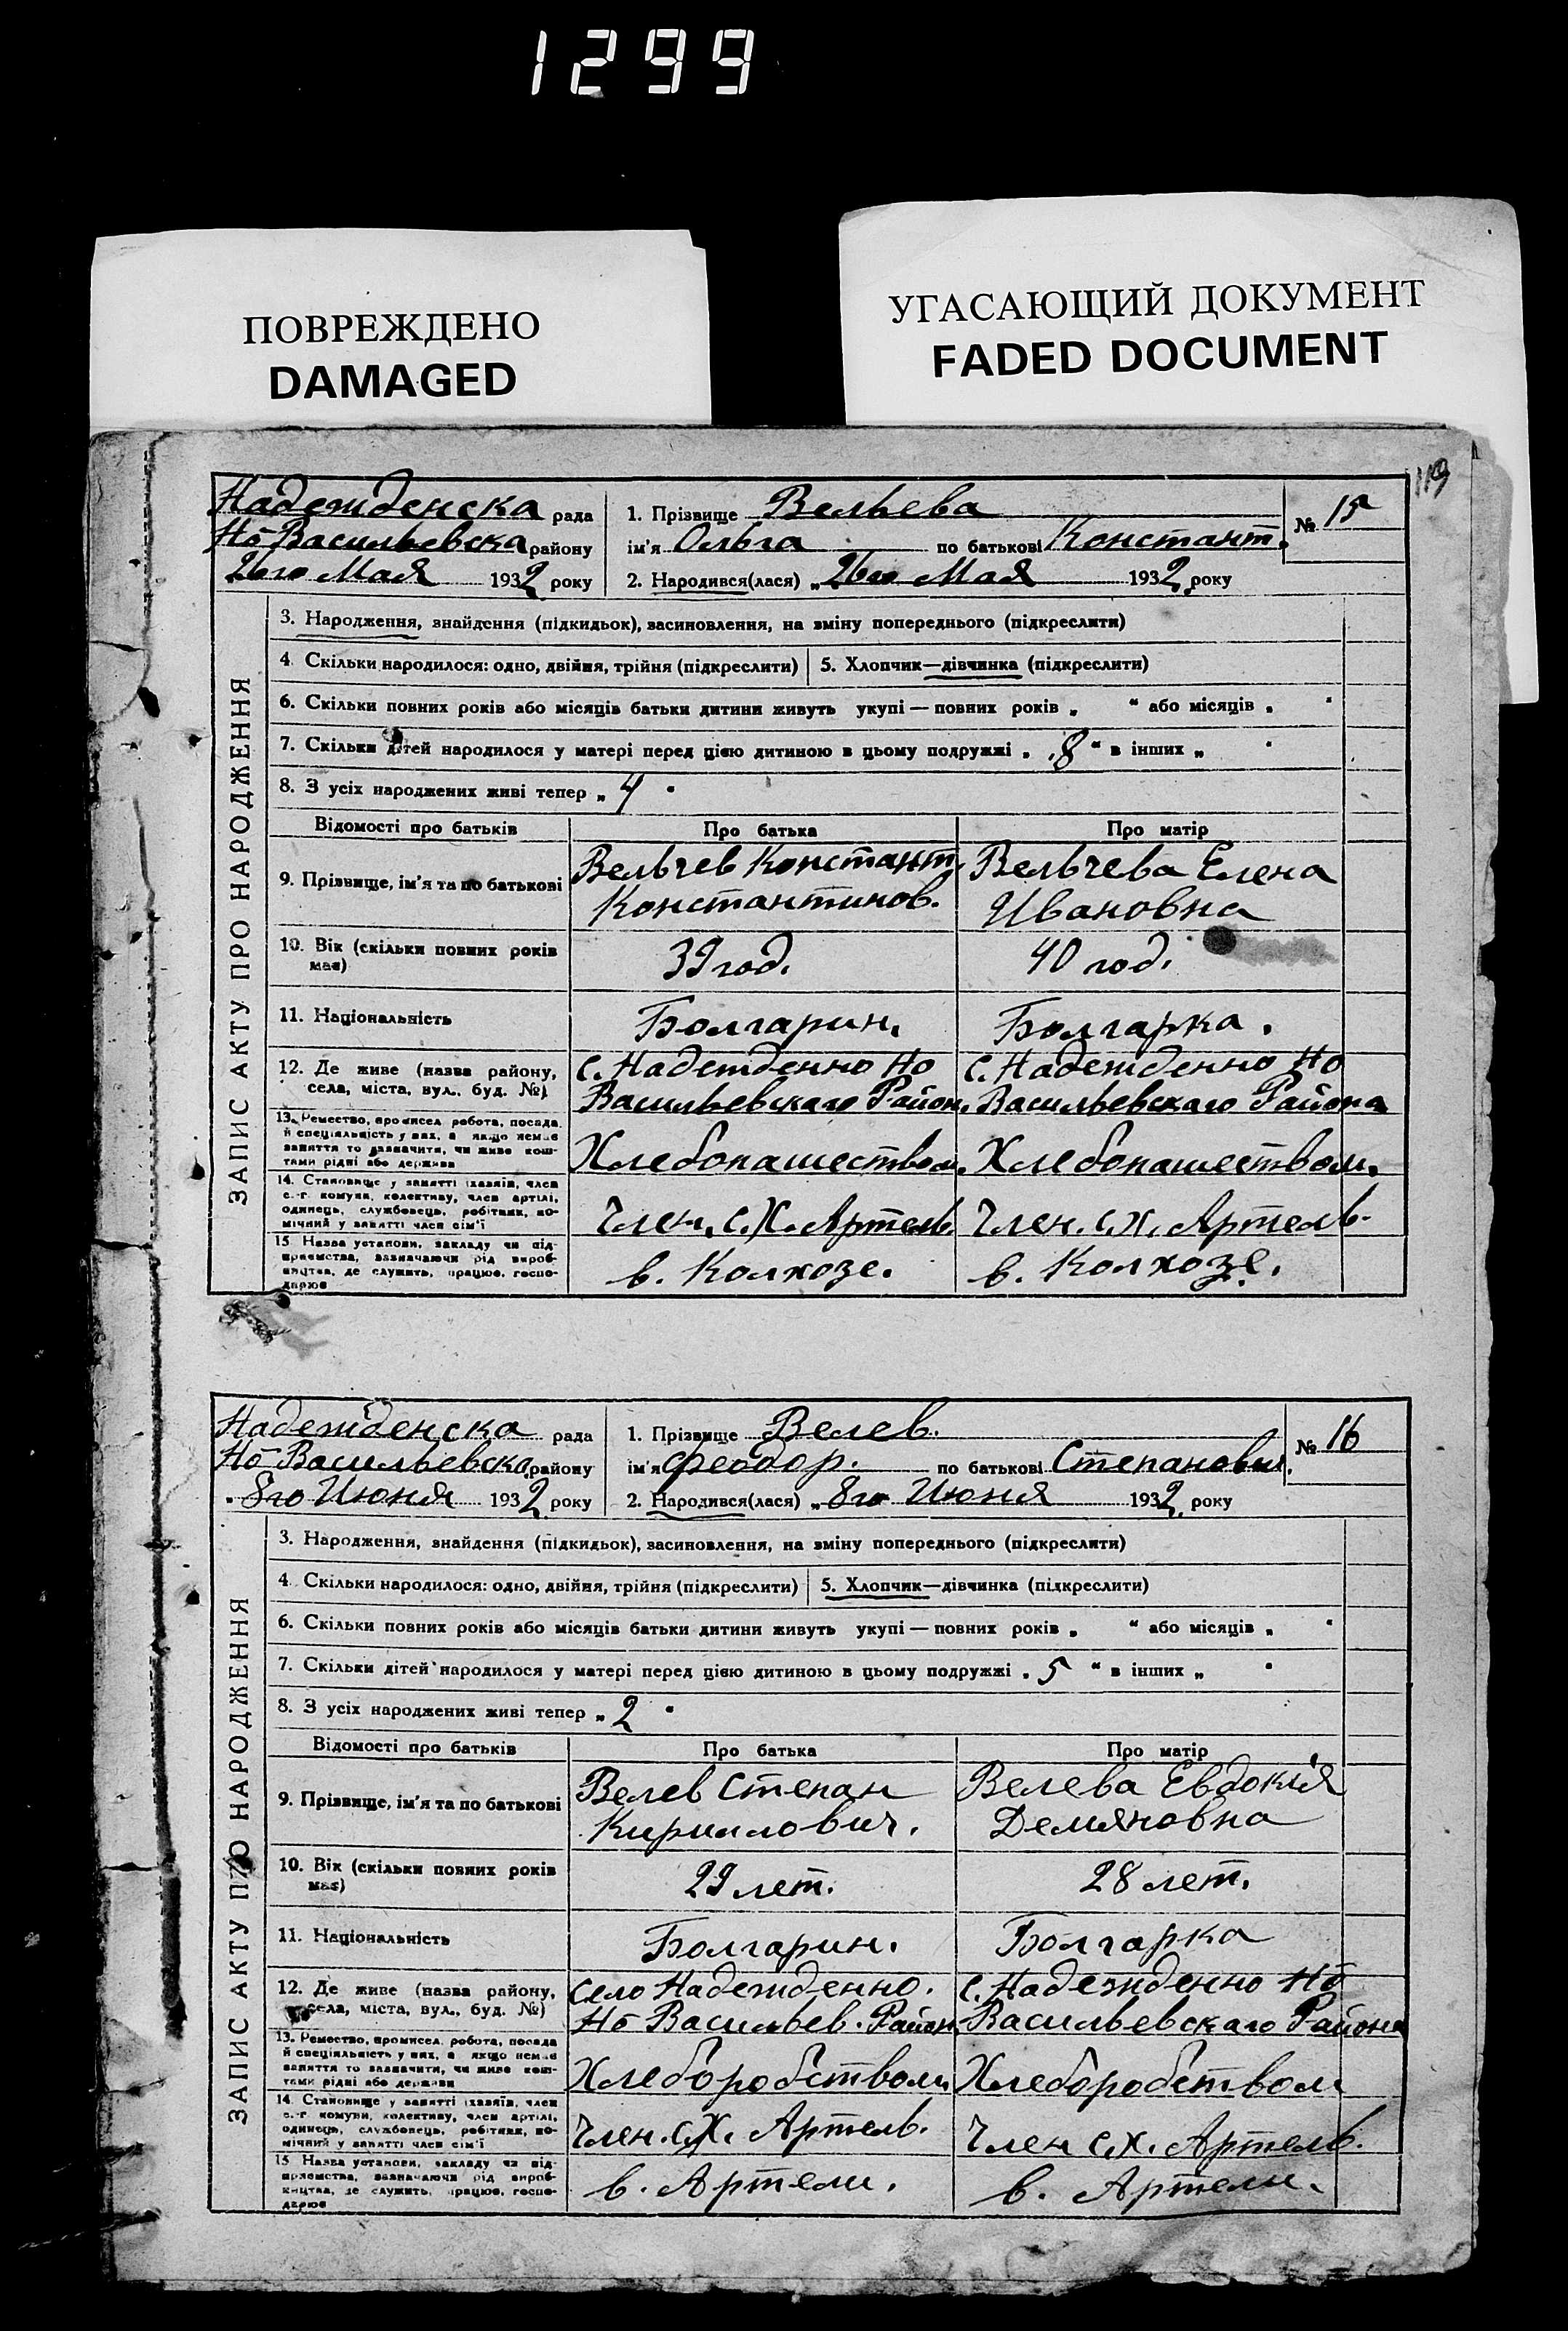 1299
ПОВРЕЖДЕНО
DAMAGED
УГАСАЮЩИЙ ДОКУМЕНТ
FADED DOCUMENT
119
Надежденска рада
Но Васильевска району
26го Мая 1932 року
1. Прізвище Вельчева
ім'я Ольга по батькові Константин.
№ 15
2. Народився(лася) „26го Мая 1932 року
ЗАПИС АКТУ ПРО НАРОДЖЕННЯ
3. Народження, знайдення (підкидьок), засиновлення, на зміну попереднього (підкреслити)
4. Скільки народилося: одно, двійня, трійня (підкреслити) 5. Хлопчик—дівчинка (підкреслити)
6. Скільки повних років або місяців батьки дитини живуть укупі — повних років „ “ або місяців „ “
7. Скільки дітей народилося у матері перед цією дитиною в цьому подружжі „ 8 “ в інших „ “
8. З усіх народжених живі тепер „ 4 “
Відомості про батьків Про батька Про матір
9. Прізвище, ім'я та по батькові
Вельчев Константин
Константинов.
Вельчева Елена
Ивановна
10. Вік (скільки повних років має)
39 год.
40 год.
11. Національність
Болгарин.
Болгарка.
12. Де живе (назва району,
села, міста, вул., буд. №)
с. Надежденно Но
Васильевскаго Район.
с. Надежденно Но
Васильевскаго Района
13. Ремество, промисел, робота, посада
й спеціяльність у них, а якщо немає
заняття то зазначити, чи живе кош-
тами рідні або держави
Хлебопашеством.
Хлебопашеством.
14. Становище у занятті (хазяїн, член
с.-г. комуни, колективу, член артілі,
одинець, службовець, робітник, по-
мічний у занятті член сім'ї
Член. с.Х. Артель.
Член. с.х. Артель.
15. Назва установи, закладу чи під-
приємства, зазначаючи рід вироб-
ництва, де служить, працює, госпо-
дарює
в. Колхозе.
в. Колхозе.
Надежденска рада
Но Васильевска району
8го Июня 1932 року
1. Прізвище Велев.
ім'я Феодор. по батькові Степанович.
№ 16
2. Народився(лася) „8го Июня 1932 року
ЗАПИС АКТУ ПРО НАРОДЖЕННЯ
3. Народження, знайдення (підкидьок), засиновлення, на зміну попереднього (підкреслити)
4. Скільки народилося: одно, двійня, трійня (підкреслити) 5. Хлопчик—дівчинка (підкреслити)
6. Скільки повних років або місяців батьки дитини живуть укупі — повних років „ “ або місяців „ “
7. Скільки дітей народилося у матері перед цією дитиною в цьому подружжі „ 5 “ в інших „ “
8. З усіх народжених живі тепер „ 2 “
Відомості про батьків Про батька Про матір
9. Прізвище, ім'я та по батькові
Велев Степан
Кириллович.
Велева Евдокия
Демяновна
10. Вік (скільки повних років має)
29 лет.
28 лет.
11. Національність
Болгарин.
Болгарка
12. Де живе (назва району,
села, міста, вул., буд. №)
Село Надежденно.
Но Васильев. Район.
с. Надежденно Но
Васильевскаго Района
13. Ремество, промисел, робота, посада
й спеціяльність у них, а якщо немає
заняття то зазначити, чи живе кош-
тами рідні або держави
Хлеборобством
Хлеборобством
14. Становище у занятті (хазяїн, член
с.-г. комуни, колективу, член артілі,
одинець, службовець, робітник, по-
мічний у занятті член сім'ї
Член. с.Х. Артель.
Член с.х. Артель.
15. Назва установи, закладу чи під-
приємства, зазначаючи рід вироб-
ництва, де служить, працює, госпо-
дарює
в. Артели.
в. Артели.